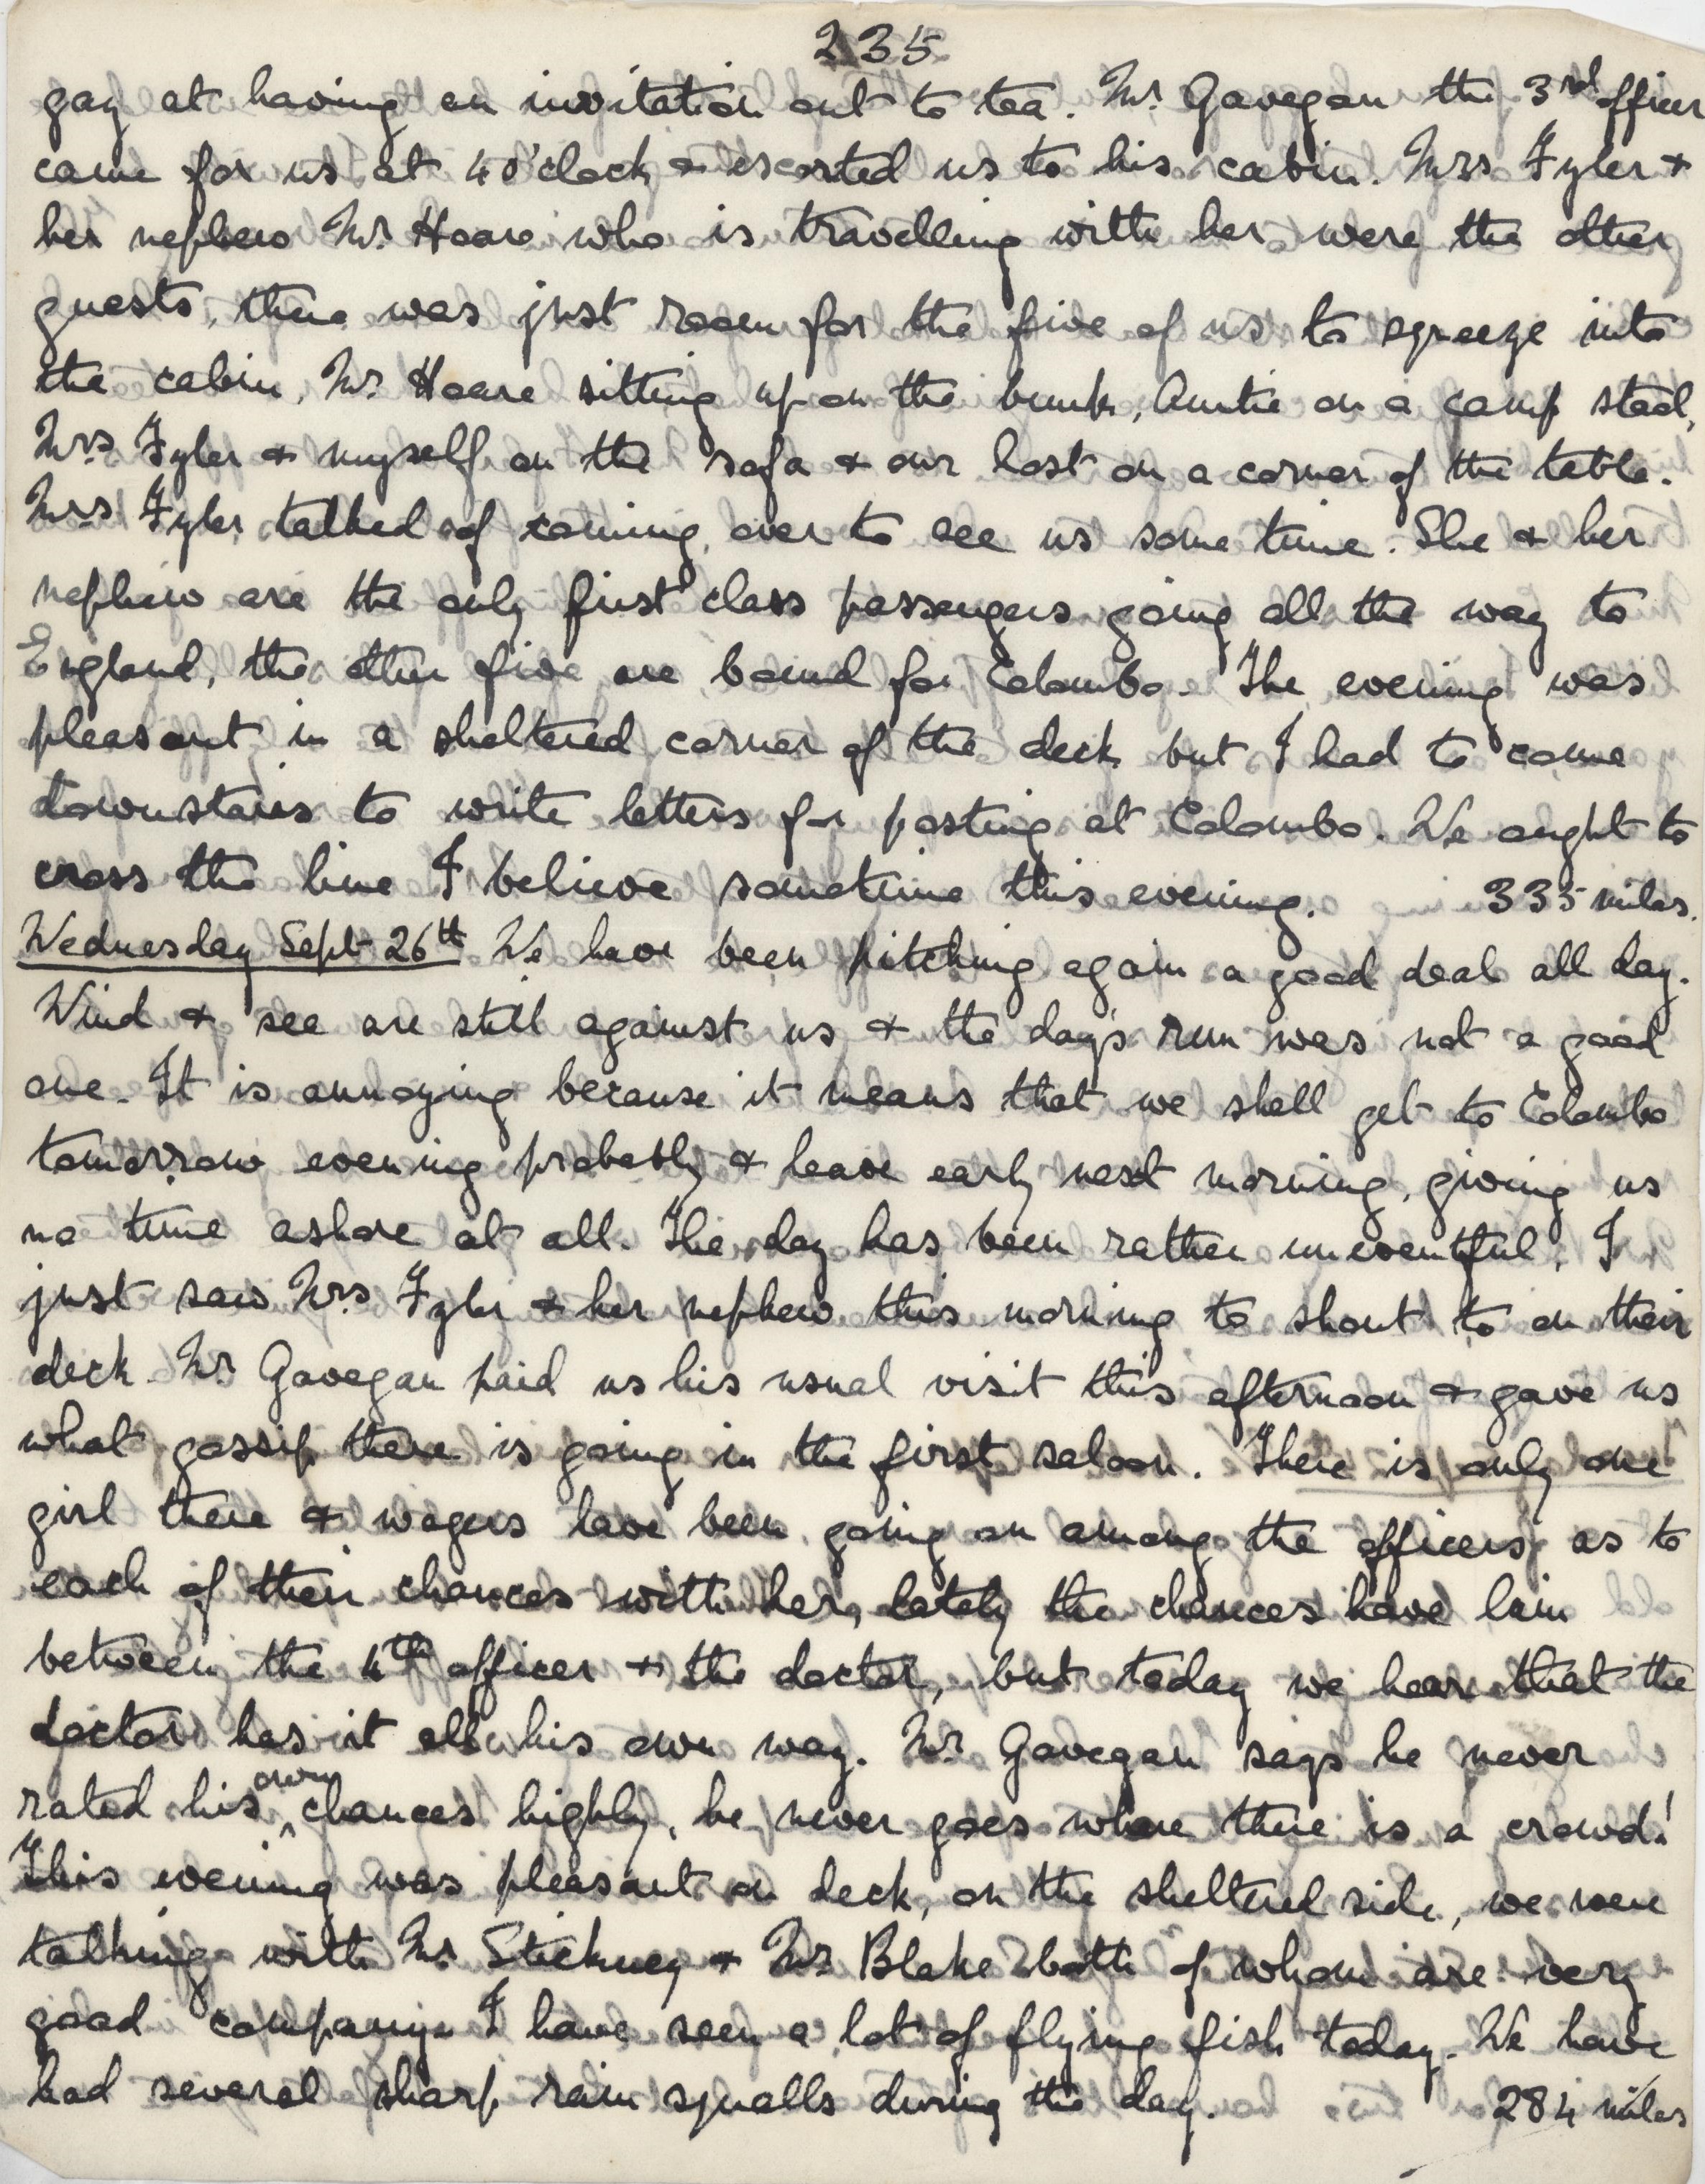 235
gay at having an invitation out to tea. Mr. Gavegan the 3rd officer
came for us at 4 o'clock & escorted us to his cabin. Mrs Fyler &
her nephew Mr. Hoare who is travelling with her were the other
guests, there was just room for the five of us to squeeze into
the cabin, Mr. Hoare sitting up on the bunk, Auntie on a camp stool,
Mrs. Fyler & myself on the sofa & our host on a corner of the table.
Mrs Fyler talked of coming over to see us some time. She & her
nephew are the only first class passengers going all the way to
England, the other five are bound for Colombo. The evening was
pleasant in a sheltered corner of the deck but I had to come
downstairs to write letters for posting at Colombo. We ought to
cross the line I believe sometime this evening. 335 miles.
Wednesday Sept 26th We have been pitching again a good deal all day.
Wind & sea are still against us & the day's run was not a good
one. It is annoying because it means that we shall get to Colombo
tomorrow evening probably & leave early next morning, giving us
no time ashore at all. The day has been rather uneventful, I
just saw Mrs Fyler & her nephew this morning to shout to on their
deck. Mr. Gavegan paid us his usual visit this afternoon & gave us
what gossip there is going in the first saloon. There is only one
girl there & wagers have been going on among the officers as to
each of their chances with her, lately the chances have lain
between the 4th officer & the doctor, but today we hear that the
doctor has it all his own way. Mr. Gavegan says he never
rated his own chances highly, he never goes where there is a crowd!
This evening was pleasant on deck, on the sheltered side, we were
talking with Mr Stickney & Mr. Blake both of whom are very
good company. I have seen a lot of flying fish today. We have
had several sharp rain squalls during the day. 284 miles